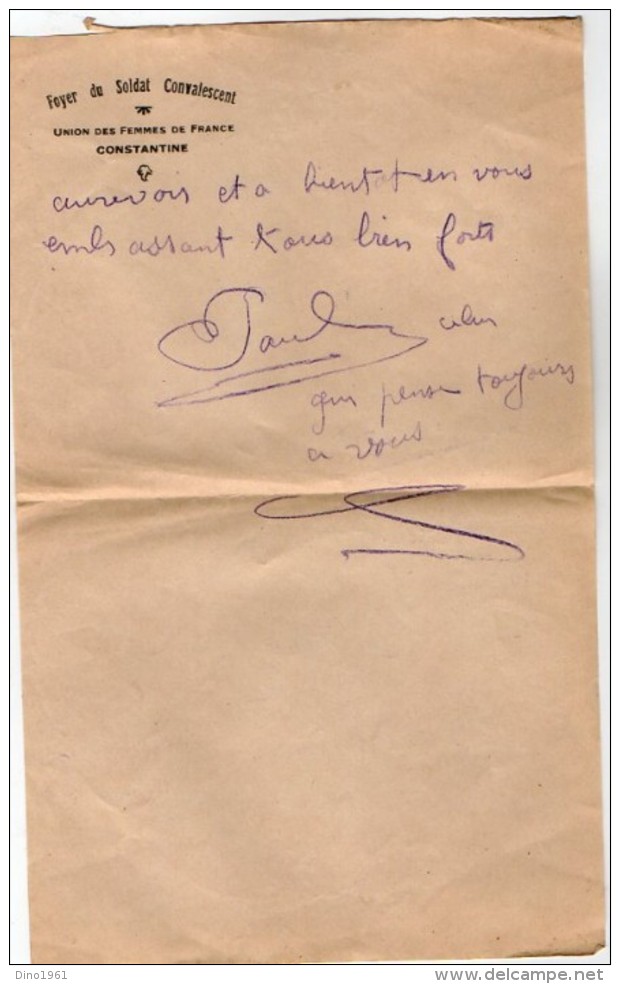 Foyer du Soldat Convalescent
UNION DES FEMMES DE FRANCE
CONSTANTINE
aurevois et a bientot en vous
embrassant tous bien forts
Paul celui
qui pense toujours
a vous
Dino1961
www.delcampe.net